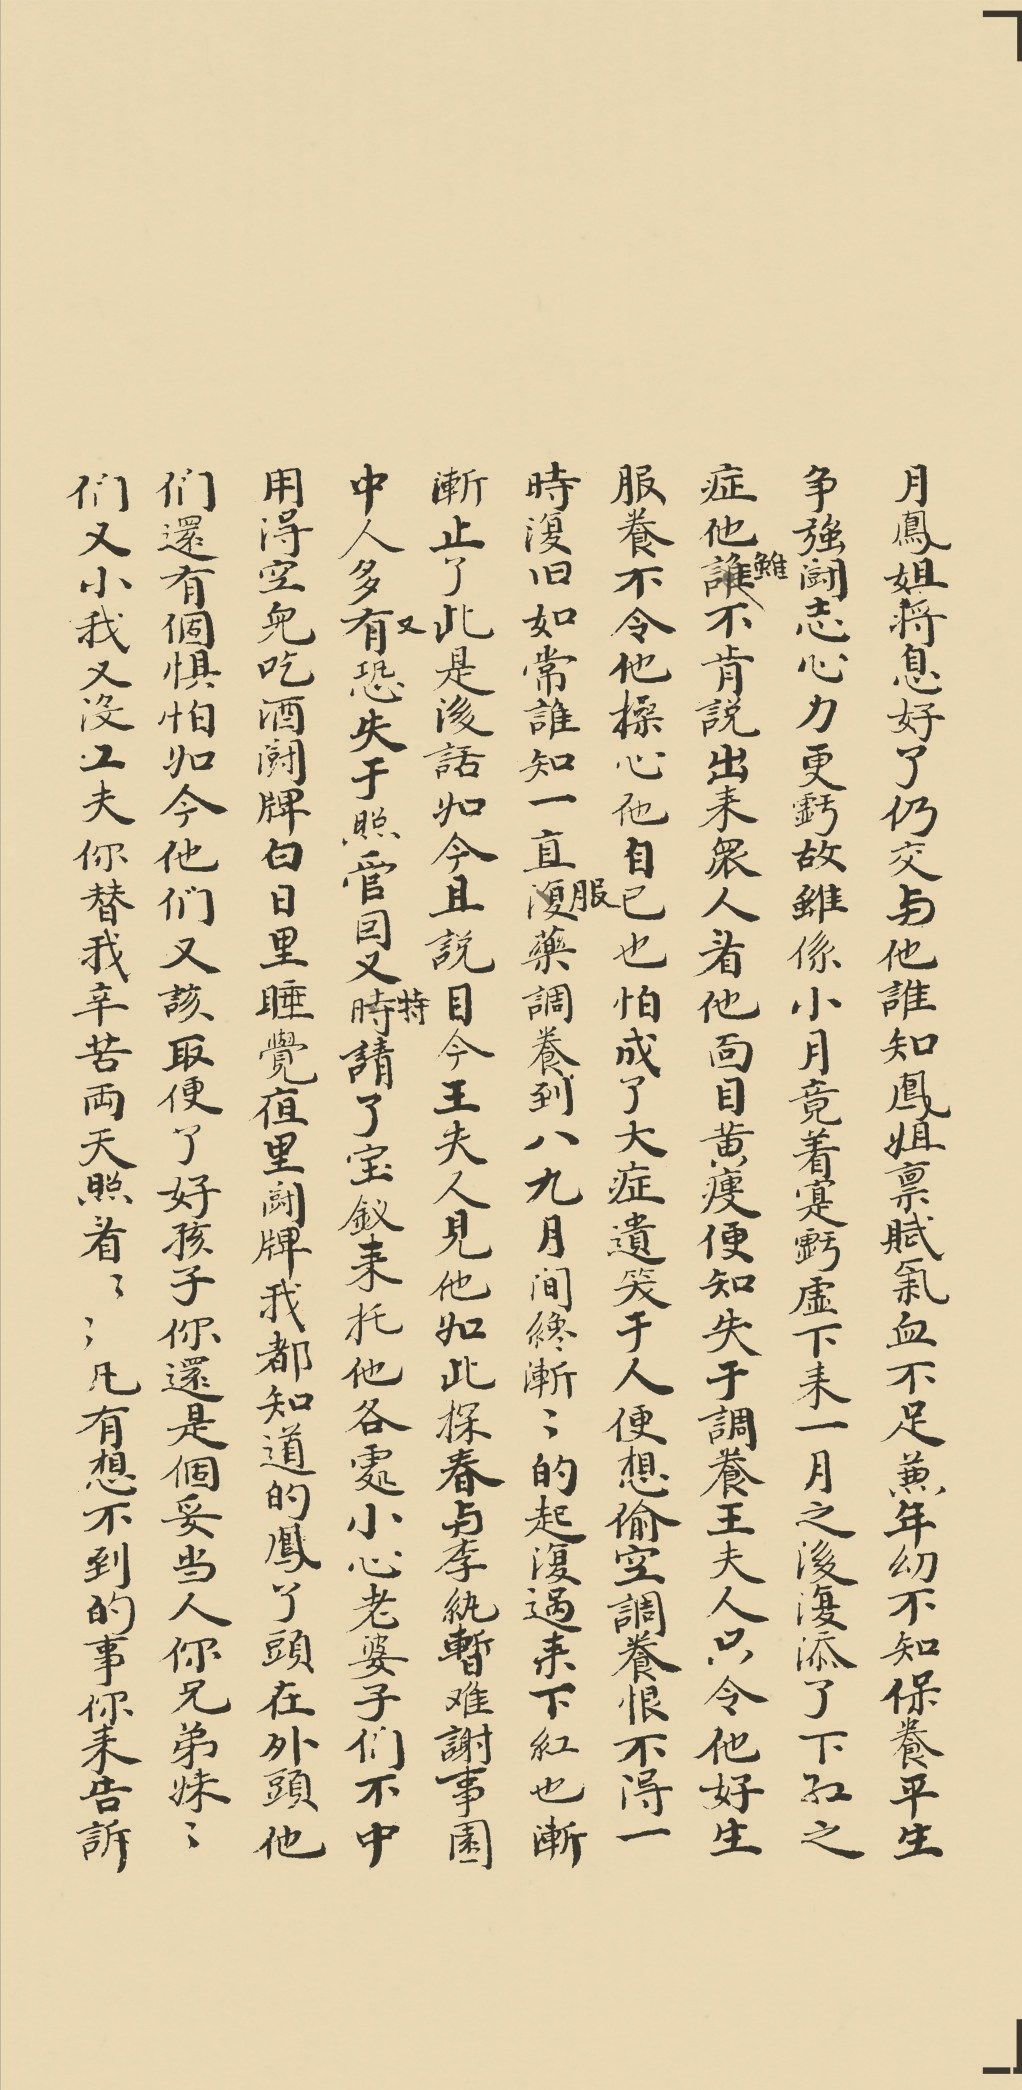 月鳳姐將息好了仍交与他誰知鳳姐禀賦氣血不足兼年幼不知保養平生
争強鬬志心力更虧故雖係小月竟着寔虧虛下来一月之後復添了下紅之
症他誰雖不肯説出来衆人看他面目黃瘦便知失于調養王夫人只令他好生
服養不令他操心他自己也怕成了大症遺笑于人便想偷空調養恨不得一
時復旧如常誰知一直復服藥調養到八九月间纔漸〻的起復過来下紅也漸
漸止了此是後話如今且説目今王夫人見他如此探春与李紈暫难謝事園
中人多有又恐失于照管囙又時特請了宝釵来托他各處小心老婆子们不中
用得空兒吃酒鬬牌白日里睡覺夜里鬬牌我都知道的鳳丫頭在外頭他
们還有個惧怕如今他们又該取便了好孩子你還是個妥当人你兄弟妹〻
们又小我又没工夫你替我辛苦両天照看〻〻凡有想不到的事你来告訴